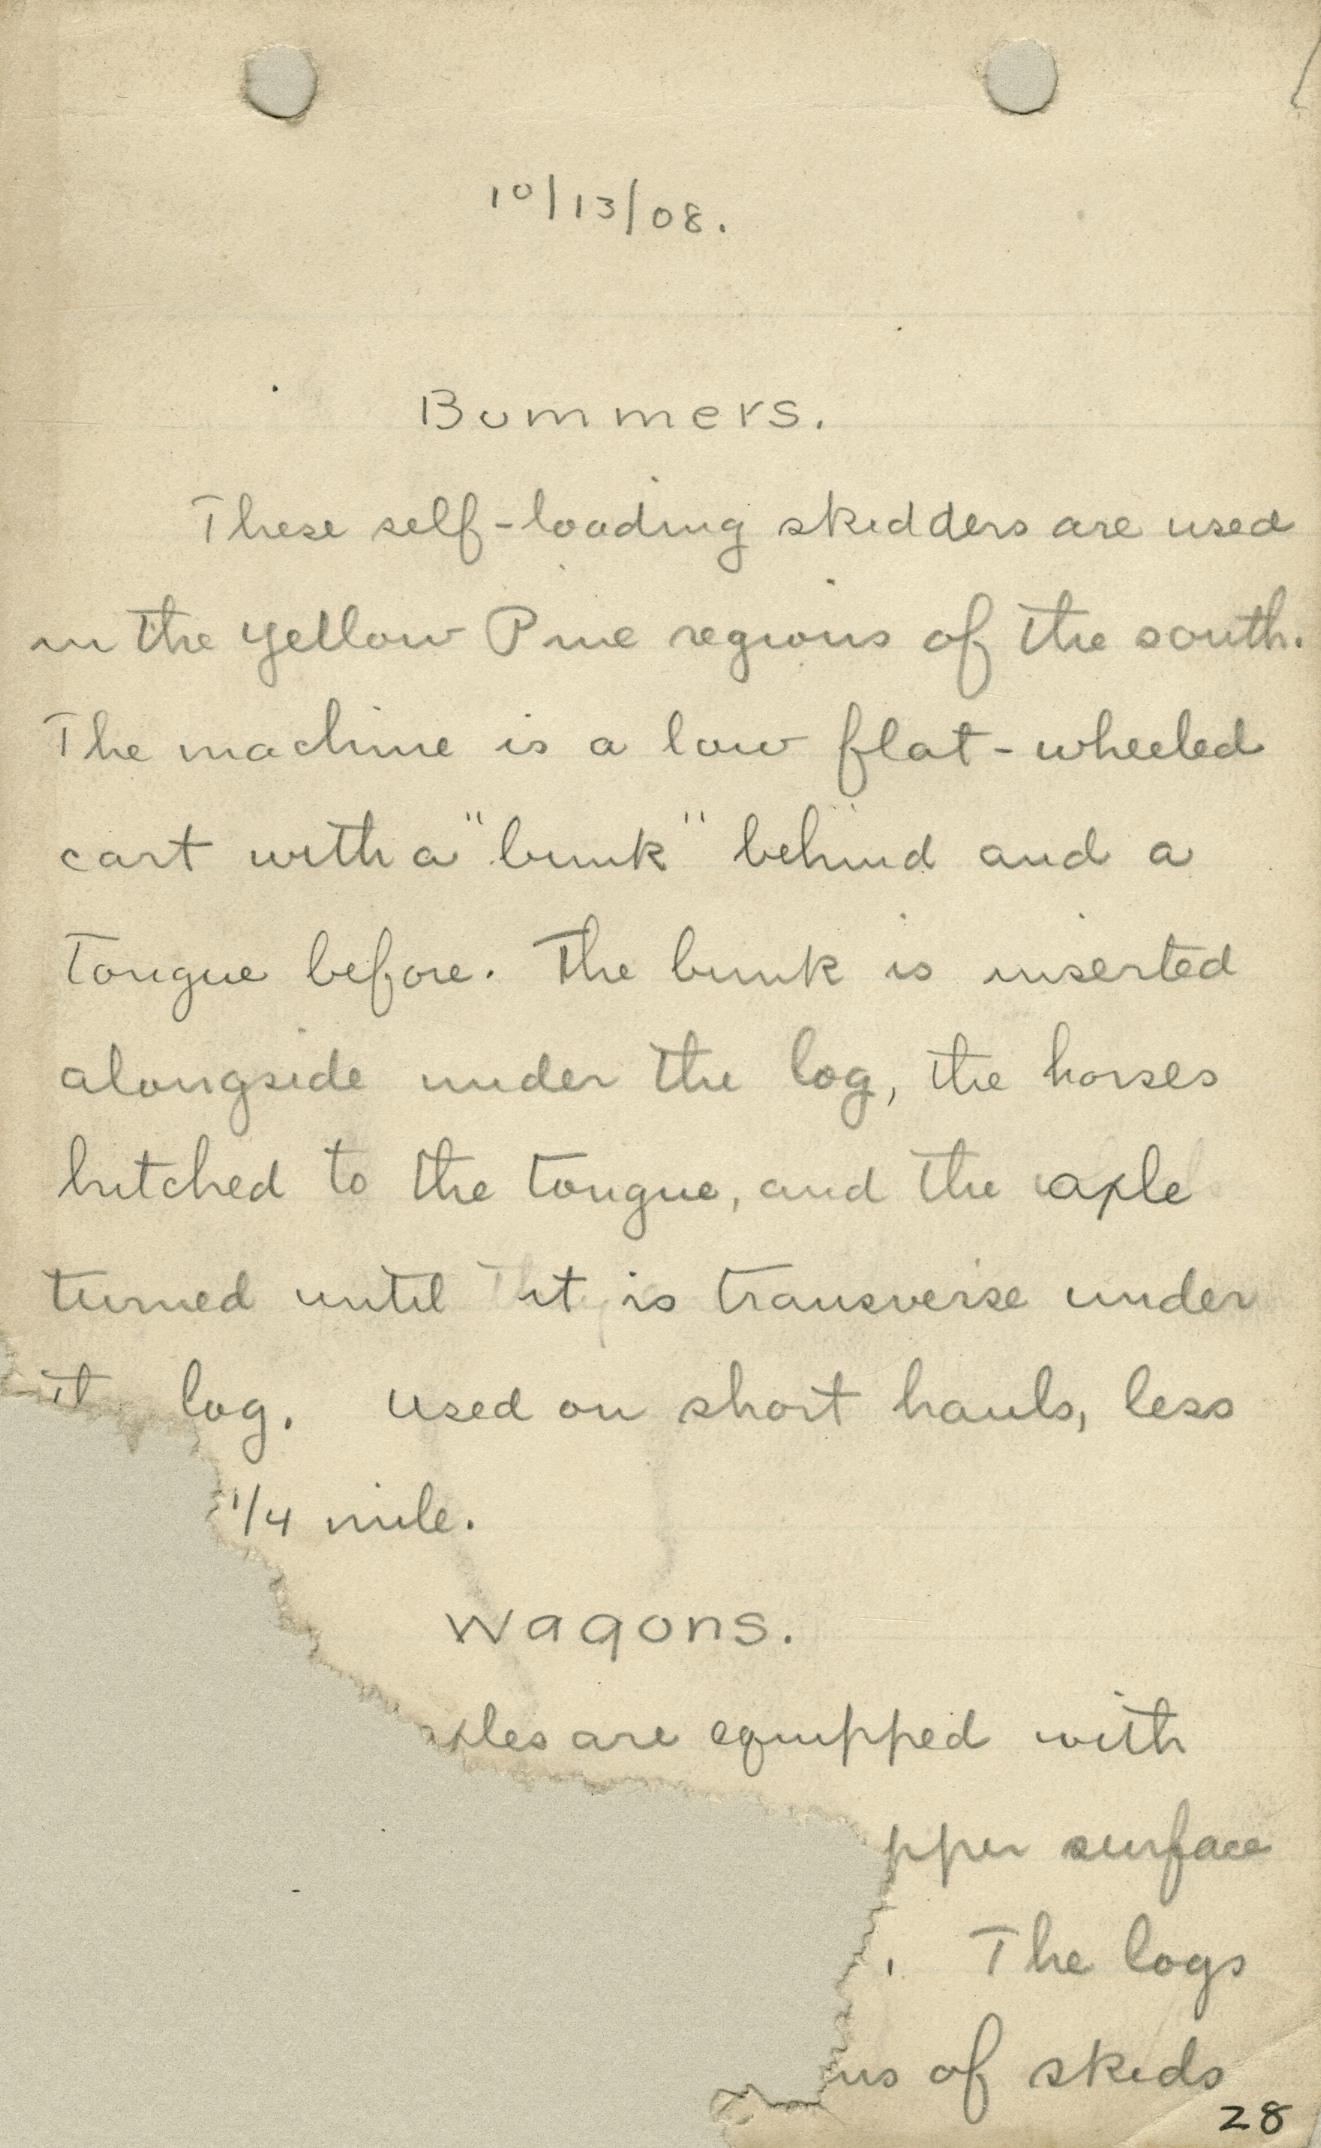 10/13/08.
Bummers.
These self-loading skidders are used
in the yellow Pine regions of the south.
The machine is a low flat-wheeled
cart with a "bunk" behind and a
tongue before. The bunk is inserted
alongside under the log, the horses
hitched to the tongue, and the axle
turned until it is transverse under
log. Used on short hauls, less
1/4 mile.
Wagons.
xles are equipped with
pper surface
. The logs
ns of skids
28